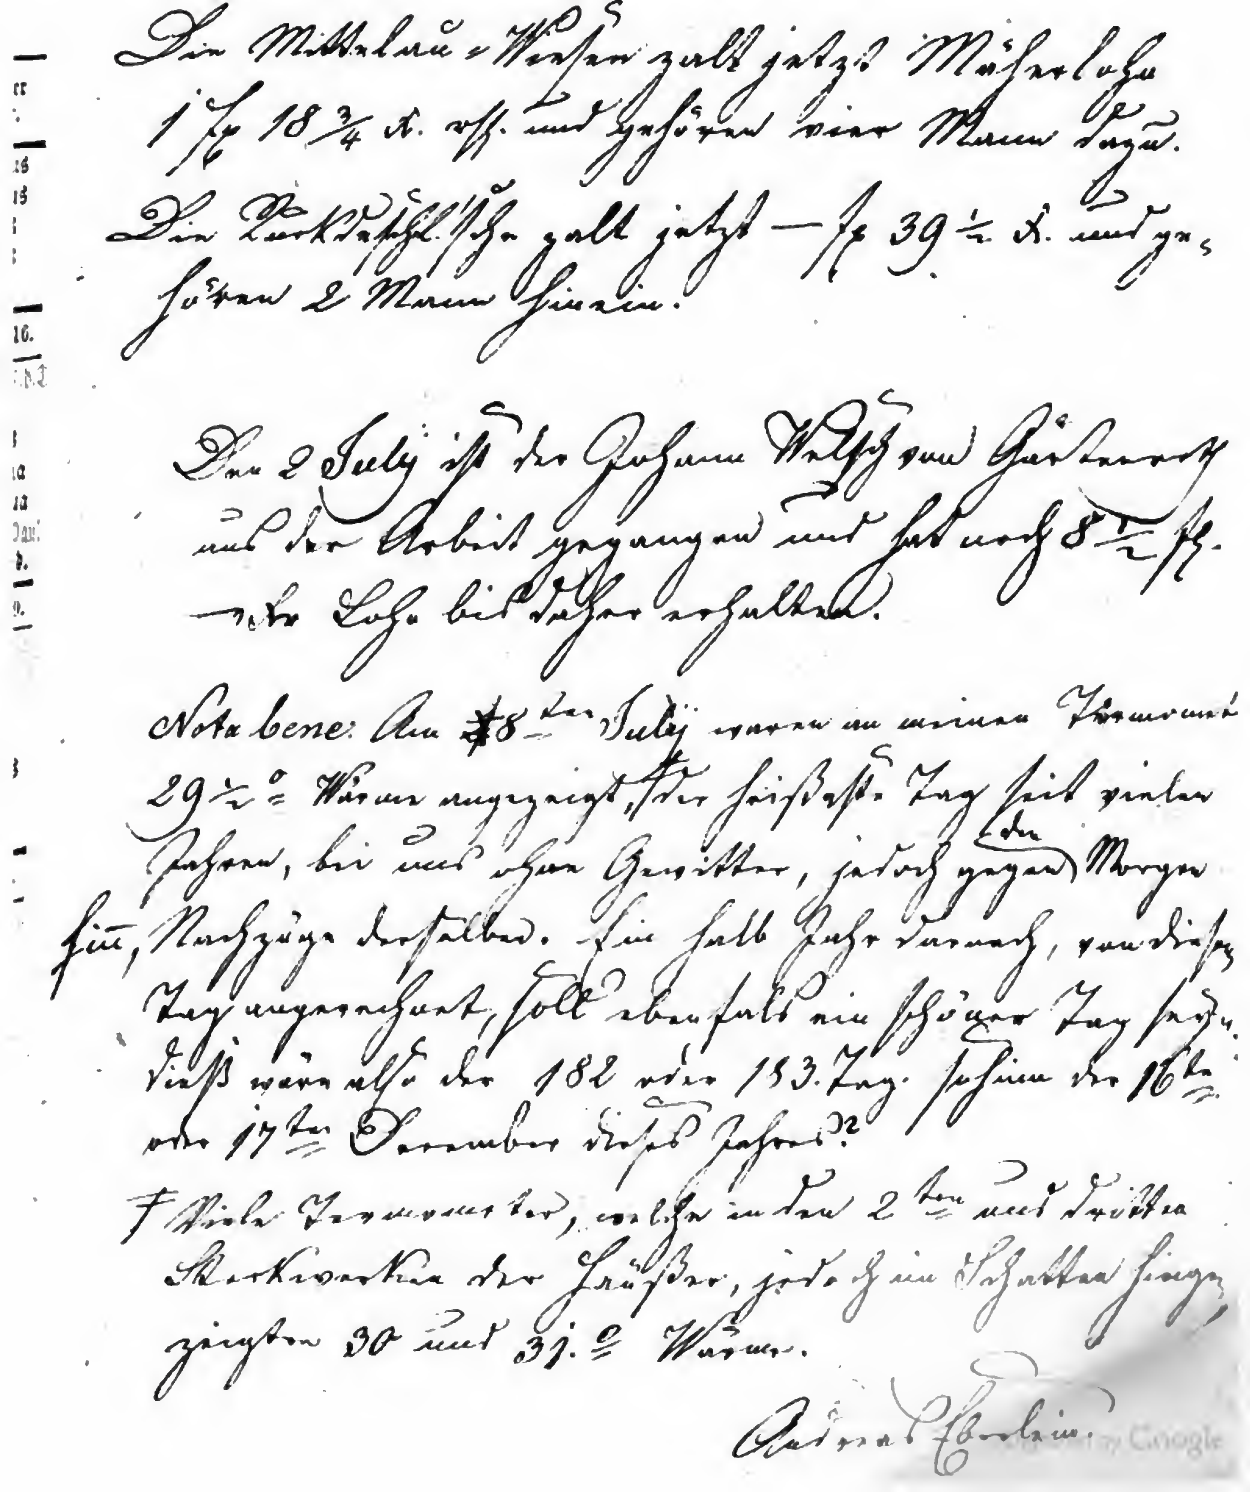 Die Mittelau-Wiesen zalt jetzt Mäherlohn
1 fx 18 3/4 x. rh. und gehören vier Mann dazu.
Die zalt jetzt — fx 39 1/2 x. und ge-
hören 2 Mann hinein.
Den 2 July ist der Johann Welsch von Gärtenroth
aus der Arbeit gegangen und hat noch 8 1/2 fl.
Lohn bis daher erhalten.
Nota bene: Am 8ten July waren an meinen Termomet
29 1/2 ° Wärme angezeigt, † der heißeste Tag seit vielen
Jahren, bei uns ohne Gewitter, jedoch gegen den Morgen
hin, Nachzüge derselben. Ein halb Jahr darnach, von diesen
Tag angerechnet, soll ebenfals ein schöner Tag seyn.
dieß wäre also der 182 oder 183. Tag. sohinn der 16te
oder 17ten December dieses Jahres?
† Viele Termometer, welche in den 2ten und dritten
Stockwerken der Häußer, jedoch im Schatten hingen,
zeigten 30 und 31.° Wärme.
Andreas Eberlein.
16.
Google